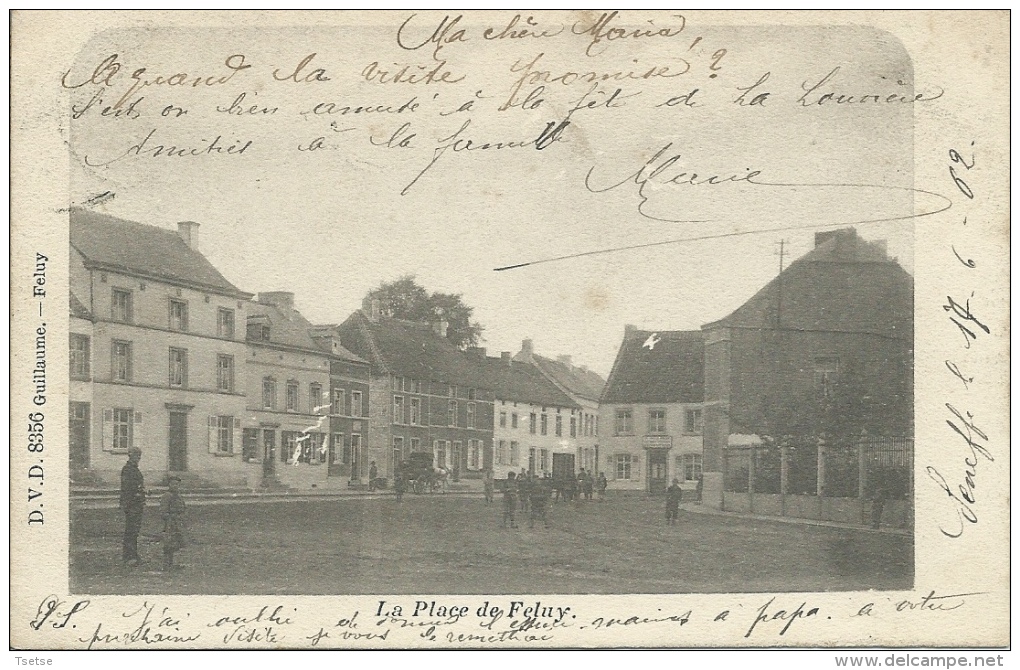 Ma chère Maria,
A quand la visite promise ?
S'est on bien amusé à la fête de La Louvière
Amitiés à la famille
Marie
Seneffe le 17-6-02.
D.V.D. 8356 Guillaume. — Feluy
La Place de Feluy.
PS. J'ai oublié de donner mains à papa. à votre
prochaine visite je vous le remettrai
Tsetse
www.delcampe.net